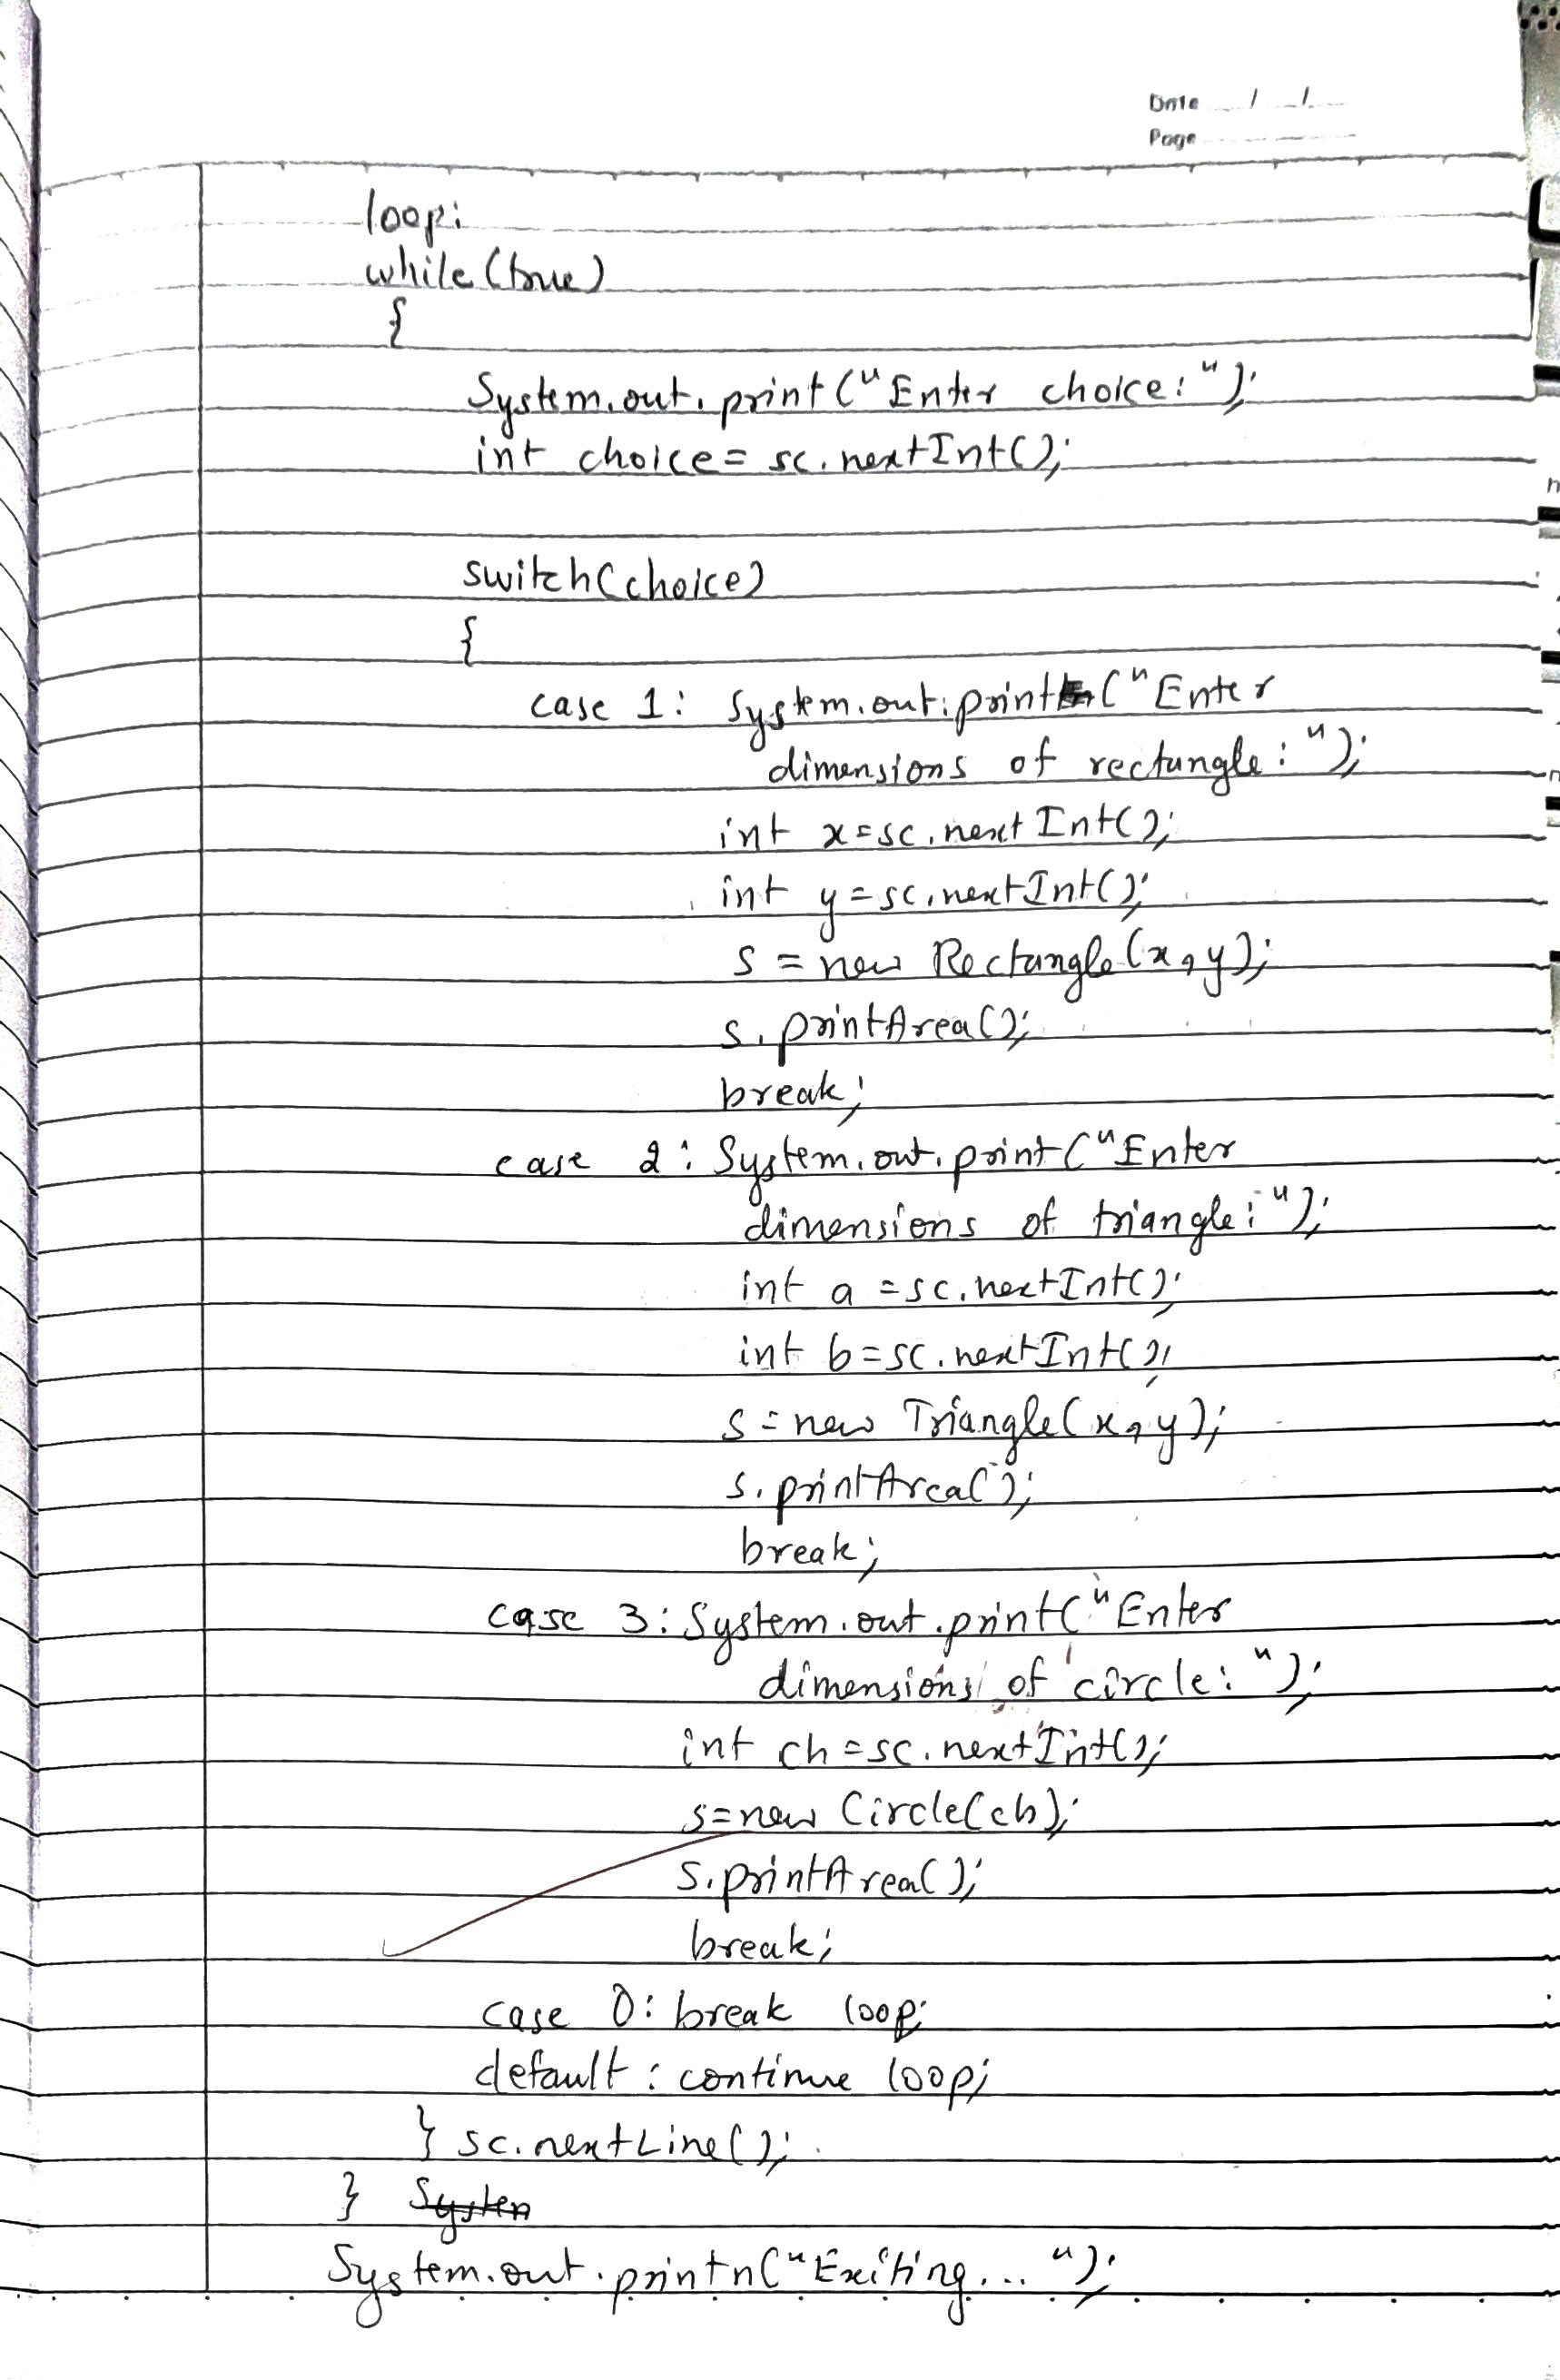 Date / /
Page
loop:
while(true)
{
System.out.print("Enter choice:");
int choice= sc.nextInt();
switch(choice)
{
case 1: System.out.print("Enter
dimensions of rectangle:");
int x=sc.nextInt();
int y=sc.nextInt();
s = new Rectangle(x,y);
s.printArea();
break;
case 2: System.out.print("Enter
dimensions of triangle:");
int a =sc.nextInt();
int b=sc.nextInt();
s = new Triangle(x,y);
s.printArea();
break;
case 3: System.out.print("Enter
dimensions of circle:");
int ch=sc.nextInt();
s=new Circle(ch);
s.printArea();
break;
case 0: break loop;
default: continue loop;
} sc.nextLine();
} System
System.out.printn("Exiting...");